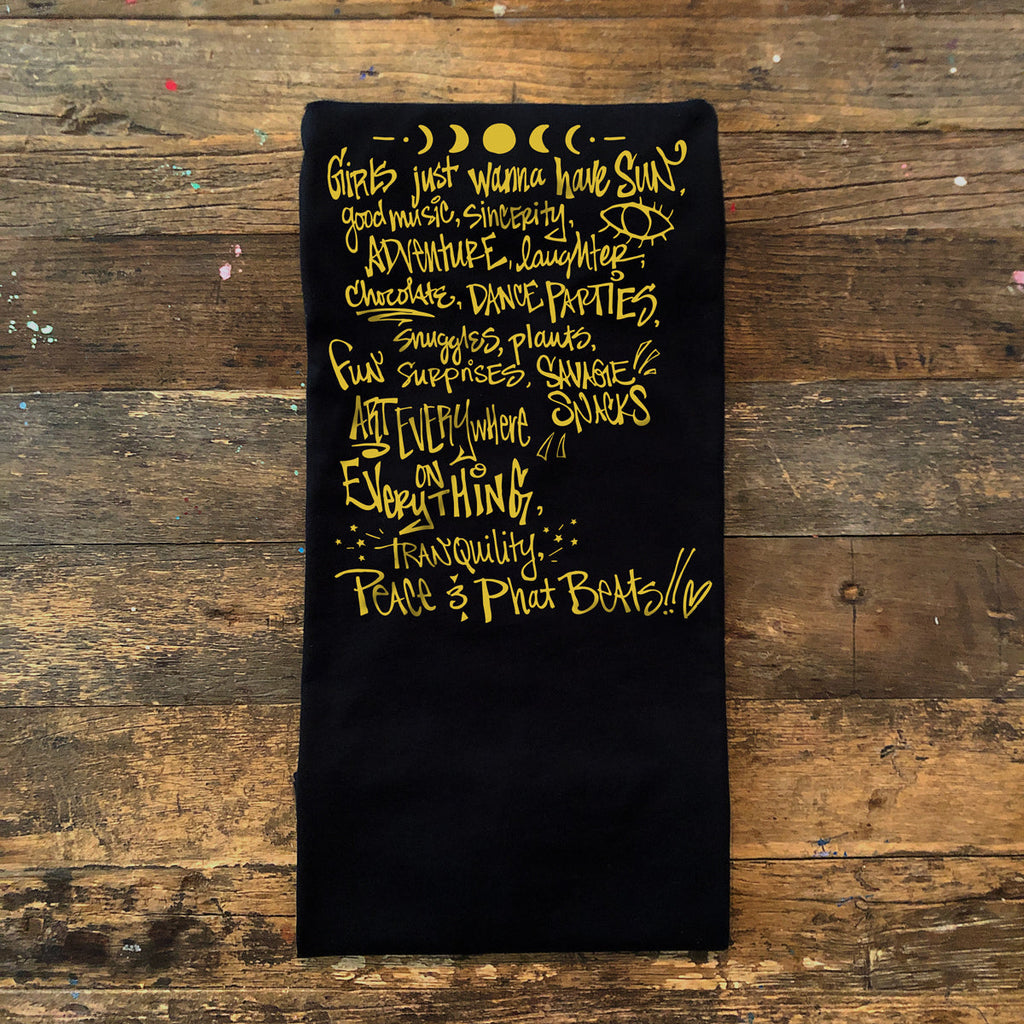 Girls just wanna have SUN,
good music, sincerity,
ADVENTURE, laughter,
chocolate, DANCE PARTIES,
snuggles, plants,
FUN SURPRISES, SAVAGE SNACKS
ART EVERYwhere
ON EVERYTHING,
TRANQUILITY,
PEACE & Phat BEATS!!